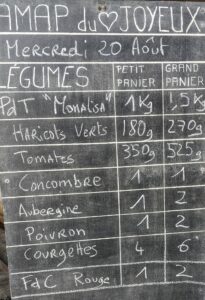 AMAP du ♡ JOYEUX
Mercredi 20 Août
LÉGUMES PETIT PANIER GRAND PANIER
PdT "Monalisa" 1Kg 1,5Kg
Haricots Verts 180g 270g
Tomates 350g 525g
Concombre 1 1
Aubergine 1 2
Poivron 1 2
Courgettes 4 6
FdC Rouge 1 2